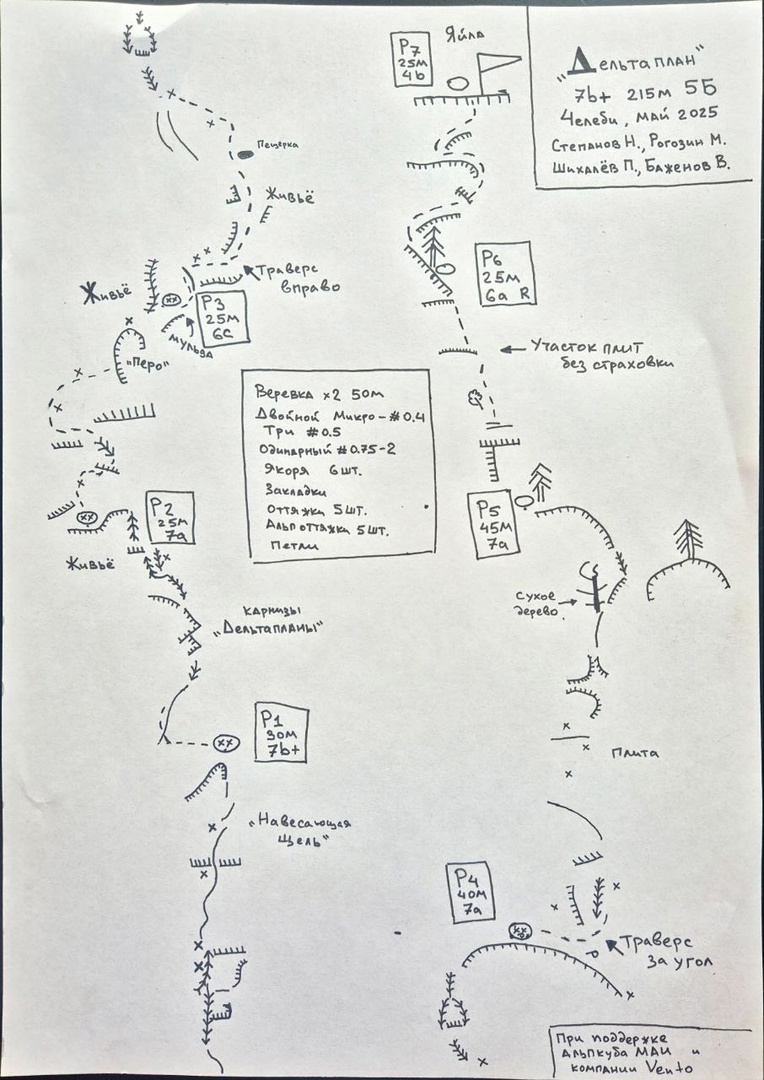 "Дельтаплан"
7b+ 215м 5Б
Челеби, май 2025
Степанов Н., Рогозин М.
Шихалёв П., Баженов В.
P7
25м
4b
Яйла
Пещерка
Живьё
Траверс
вправо
Живьё
P3
25м
6c
мульда
"Перо"
P6
25м
6a R
Участок плит
без страховки
Веревка x2 50м
Двойной Микро-#0.4
Три #0.5
Одинарный #0.75-2
Якоря 6шт.
Закладки
Оттяжки 5шт.
Альпоттяжки 5шт.
Петли
P2
25м
7a
Живьё
P5
45м
7a
Сухое
дерево
карнизы
"Дельтапланы"
P1
30м
7b+
Плита
"Навесающая
щель"
P4
40м
7a
Траверс
за угол
При поддержке
Альпкуба МАИ и
компании Vento